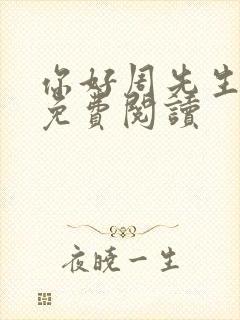 你好周先生
免費閱讀
夜曉一生